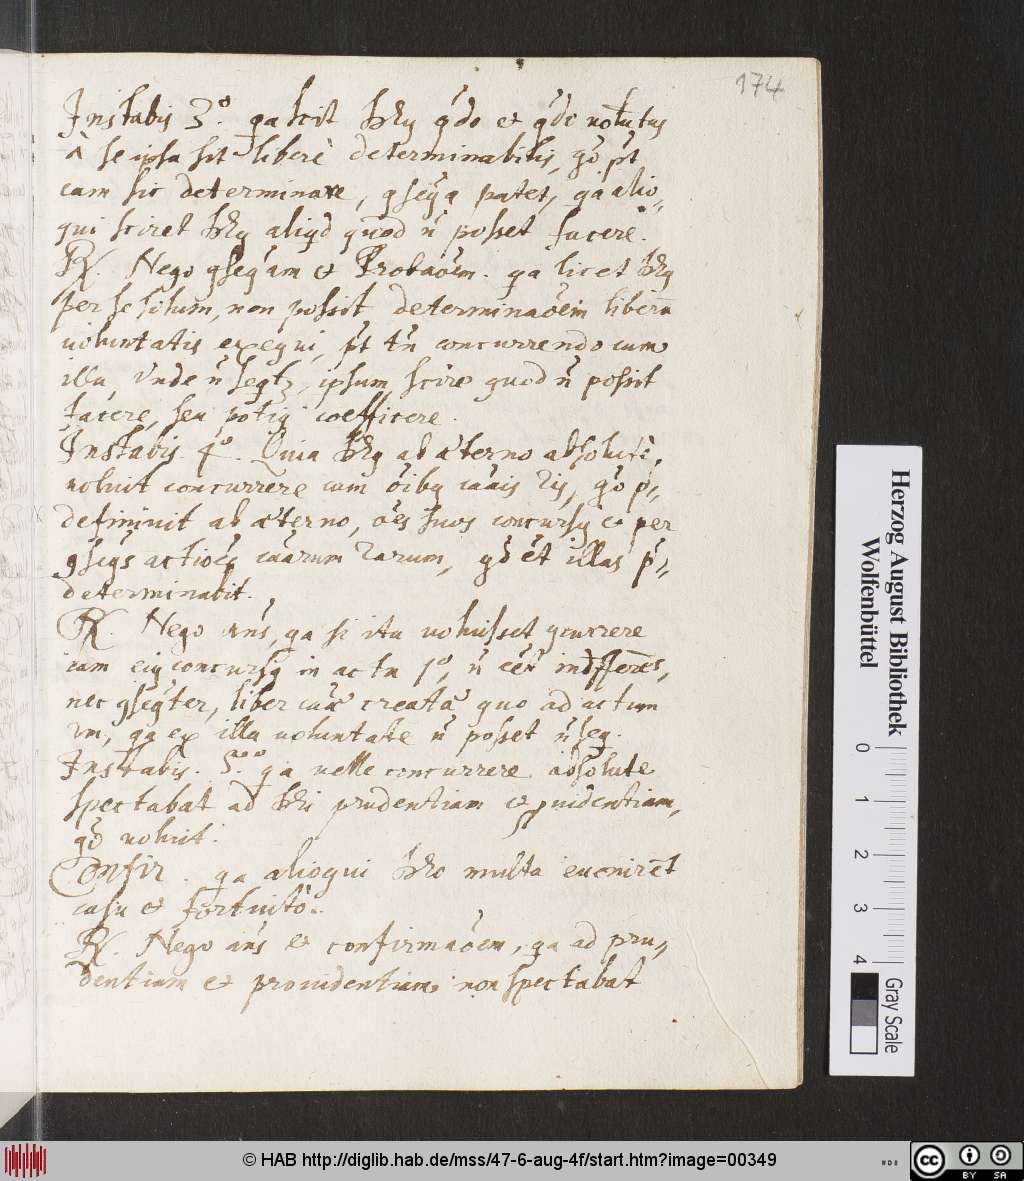 174
Instabis 3º. qa scit Deus qdo et qdo voluntas
à se ipsa sit liberè determinabilis, go pt
eam sic determinare, qseqa patet, qa alio-
qui sciret Deus aliqd quod n posset facere.
R. Nego qseqam et Probaoem. qa licet Deus
per se solum, non possit determinaoem liberam
voluntatis exequi, pt tn concurrendo cum
illa, Vnde n seqtz, ipsum scire quod n possit
facere, seu potius coefficere.
Instabis. 4º. Quia Deus ab æterno absolutè
voluit concurrere cum oibus cauis 2is, go p-
definiuit ab æterno, oes suos concursus et per
qseqs actioes cuarum 2arum, go et illas p-
determinabit.
R. Nego ans, qa si ita voluisset qcurrere
iam eius concursus in actu 1º, n eēt indifferēs,
nec qseqter, liber cuā creatā quo ad actum
2m, qa ex illa voluntate n posset n seq.
Instabis. 5º. qa uelle concurrere absolute
spectabat ad Dei prudentiam et puidentiam,
go voluit.
Confir. qa alioqui Deo multa euenirēt
casu et fortuitò.
R. Nego ans et confirmaoem, qa ad pru-
dentiam et prouidentiam non spectabat
Herzog August Bibliothek
Wolfenbüttel
0 1 2 3 4
Gray Scale
© HAB http://diglib.hab.de/mss/47-6-aug-4f/start.htm?image=00349
cc BY SA